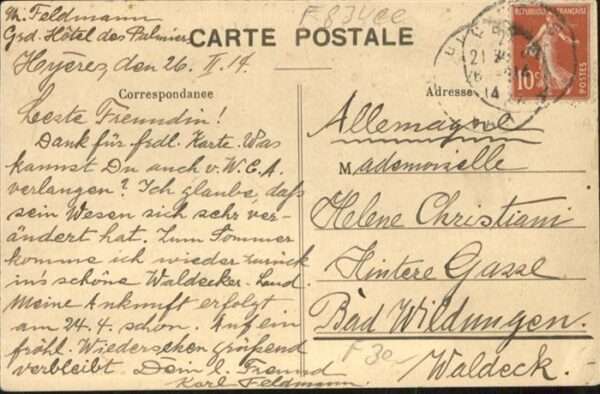 M. Feldmann
Grd. Hôtel des Palmiers
Hyères, den 26. II. 14.
F 834CC
CARTE POSTALE
Correspondance
Adresse
REPUBLIQUE FRANÇAISE
10c
POSTES
HYERES
21
26
14
Leeste Freundin!
Dank für frdl. Karte. Was
kannst Du auch v. W. C. A.
verlangen? Ich glaube, daß
sein Wesen sich sehr ver-
ändert hat. Zum Sommer
komme ich wieder zurück
in's schöne Waldecker-Land.
Meine Ankunft erfolgt
am 24.4. schon. Auf ein
fröhl. Wiedersehen grüßend
verbleibt Dein l. Freund
Karl Feldmann.
Allemagne
Mademoiselle
Helene Christiani
Hintere Gasse
Bad Wildungen.
Waldeck.
F 30